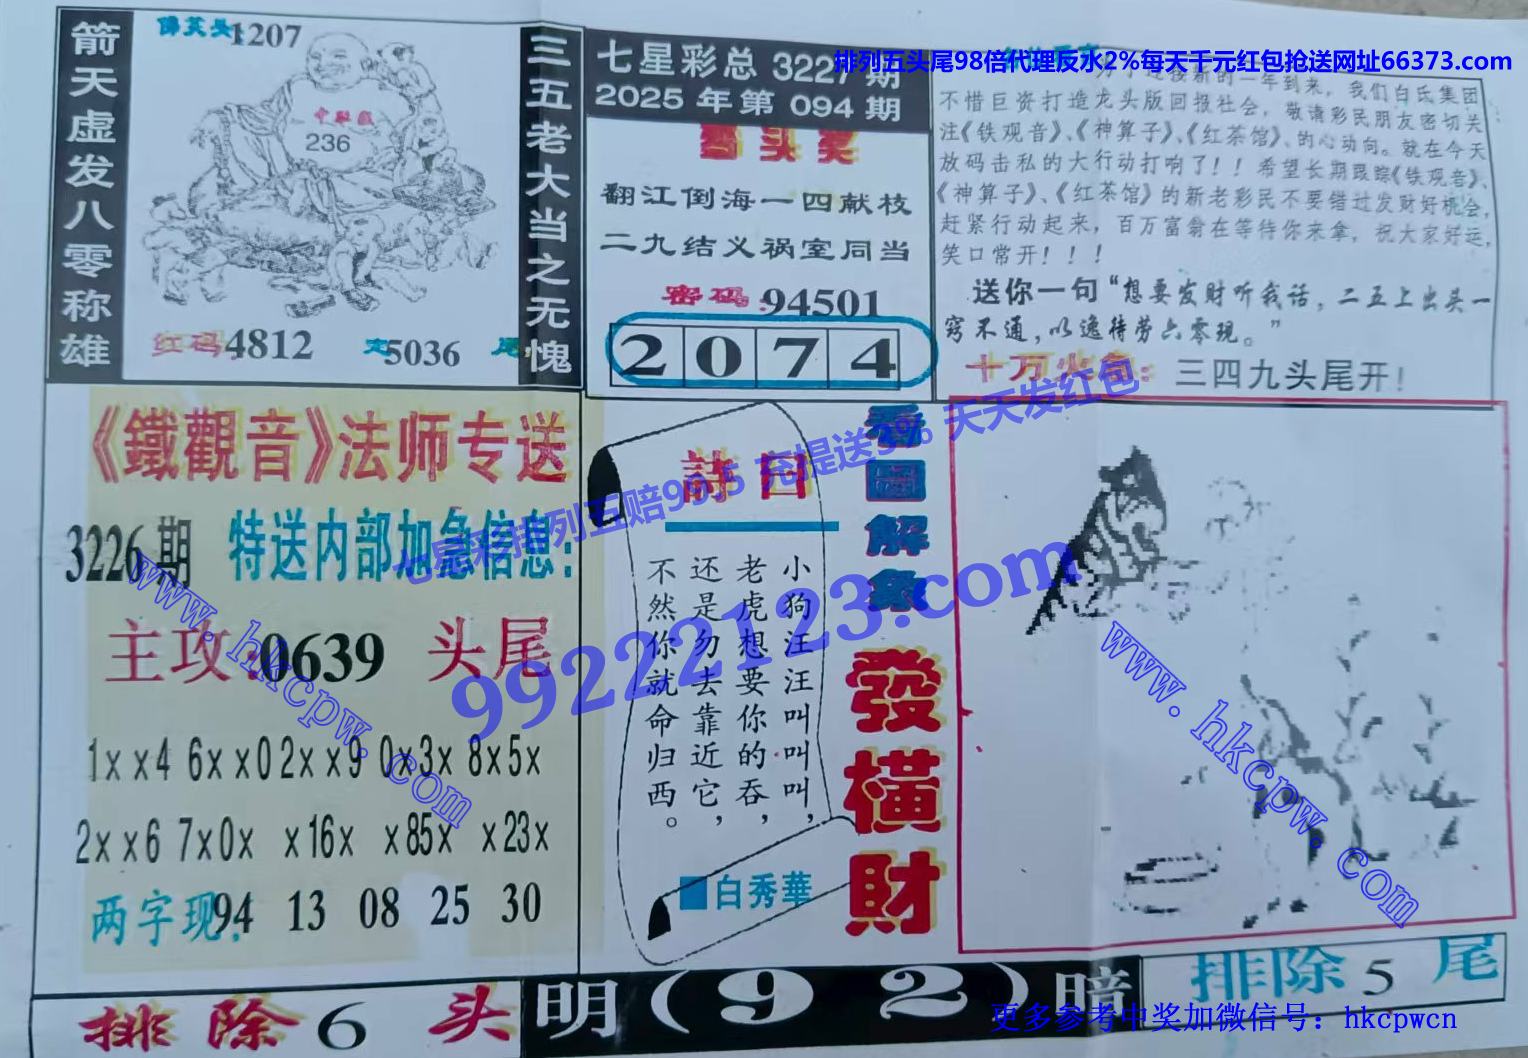 箭天虚发八零称雄
1207
中融鼠
236
红码4812
5036
三五老大当之无愧
七星彩总 3227 期
2025 年第 094 期
翻江倒海一四献枝
二九结义祸室同当
密码:94501
2 0 7 4
排列五头尾98倍代理反水2%每天千元红包抢送网址66373.com
为了迎接新的一年到来，我们白氏集团
不惜巨资打造龙头版回报社会，敬请彩民朋友密切关
注《铁观音》、《神算子》、《红茶馆》、的心动向。就在今天
放码击私的大行动打响了！！希望长期跟踪《铁观音》、
《神算子》、《红茶馆》的新老彩民不要错过发财好机会，
赶紧行动起来，百万富翁在等待你来拿，祝大家好运，
笑口常开！！！
送你一句“想要发财听我话，二五上出头一
窍不通，以逸待劳六零现。”
十万火急：三四九头尾开！
《鐵觀音》法师专送
3226 期 特送内部加急信息：
主攻:0639 头尾
1xx4 6xx0 2xx9 0x3x 8x5x
2xx6 7x0x x16x x85x x23x
两字现:94 13 08 25 30
詩曰
小狗汪汪叫叫叫，
老虎想要你的吞，
还是勿去靠近它，
不然你就命归西。
白秀華
看圖解象
發橫財
七星彩排列五赔9995 充提送3% 天天发红包
99222123.com
www.hkcpw.com
www.hkcpw.com
排除 6 头
明(92)暗
排除 5 尾
更多参考中奖加微信号：hkcpwcn